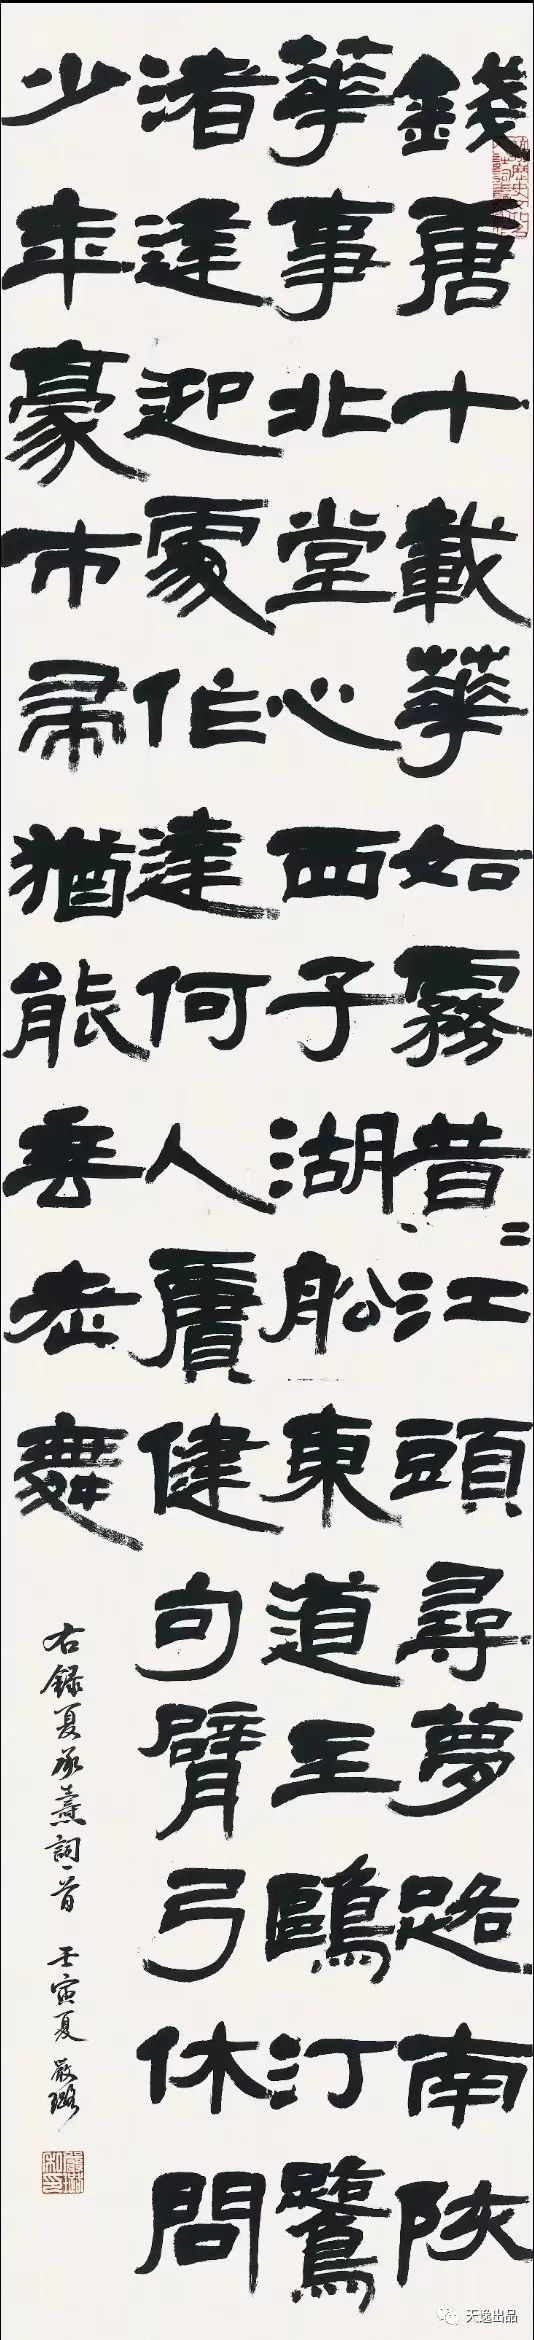 錢唐十載華如霧昔〻江頭尋夢路南陔
華事北堂心西子湖船東道主鷗汀鷺
渚逢迎處作達何人賡健句臂弓休問
少年豪市帚猶能垂老舞
右錄夏承燾詞一首 壬寅夏 嚴璐
天逸出品